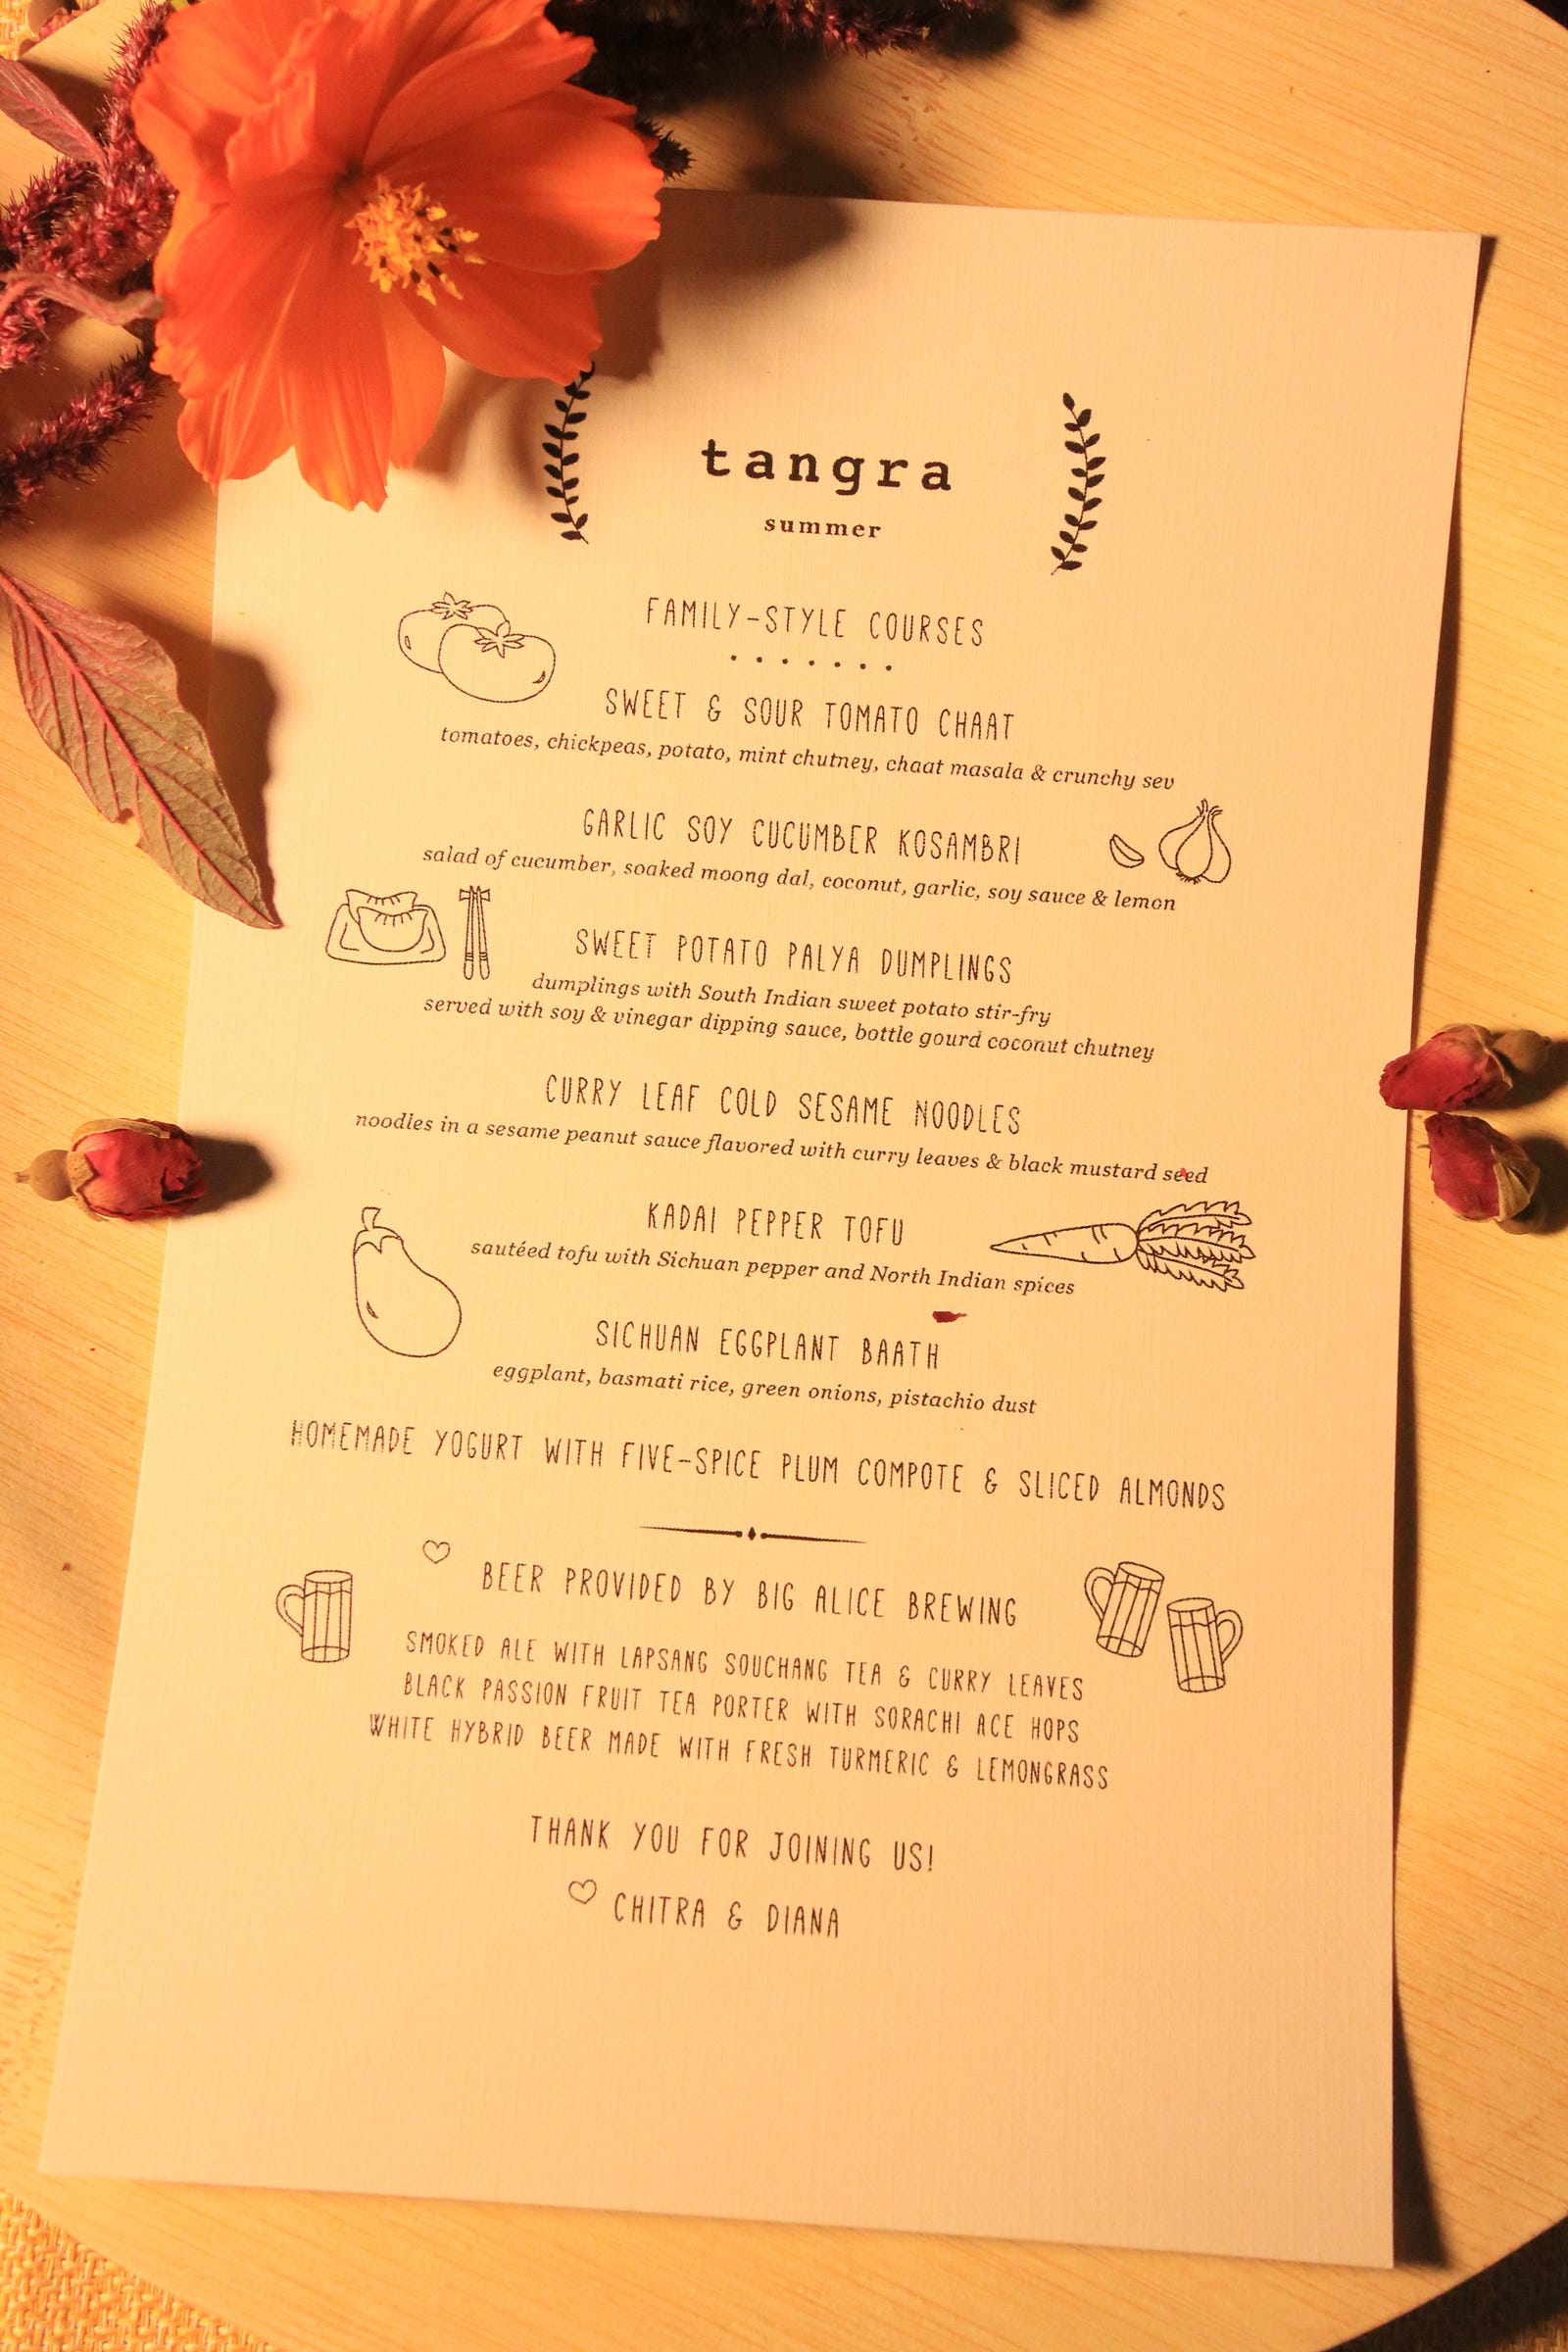 tangra
summer
FAMILY-STYLE COURSES
SWEET & SOUR TOMATO CHAAT
tomatoes, chickpeas, potato, mint chutney, chaat masala & crunchy sev
GARLIC SOY CUCUMBER KOSAMBRI
salad of cucumber, soaked moong dal, coconut, garlic, soy sauce & lemon
SWEET POTATO PALYA DUMPLINGS
dumplings with South Indian sweet potato stir-fry
served with soy & vinegar dipping sauce, bottle gourd coconut chutney
CURRY LEAF COLD SESAME NOODLES
noodles in a sesame peanut sauce flavored with curry leaves & black mustard seed
KADAI PEPPER TOFU
sautéed tofu with Sichuan pepper and North Indian spices
SICHUAN EGGPLANT BAATH
eggplant, basmati rice, green onions, pistachio dust
HOMEMADE YOGURT WITH FIVE-SPICE PLUM COMPOTE & SLICED ALMONDS
BEER PROVIDED BY BIG ALICE BREWING
SMOKED ALE WITH LAPSANG SOUCHANG TEA & CURRY LEAVES
BLACK PASSION FRUIT TEA PORTER WITH SORACHI ACE HOPS
WHITE HYBRID BEER MADE WITH FRESH TURMERIC & LEMONGRASS
THANK YOU FOR JOINING US!
CHITRA & DIANA